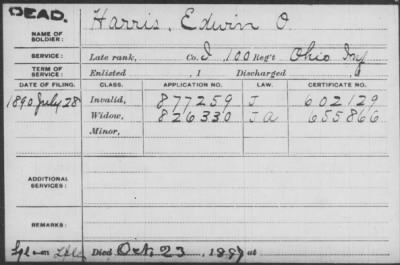 DEAD.
NAME OF SOLDIER: Harris, Edwin O.
SERVICE: Late rank, Co. I, 100 Reg't Ohio Inf
TERM OF SERVICE: Enlisted , 1 Discharged , 1
DATE OF FILING. CLASS. APPLICATION NO. LAW. CERTIFICATE NO.
1890 July 28 Invalid, 877259 J 602129
Widow, 826330 J.A 655866
Minor,
ADDITIONAL SERVICES:
REMARKS:
Died Oct 23, 1897 at